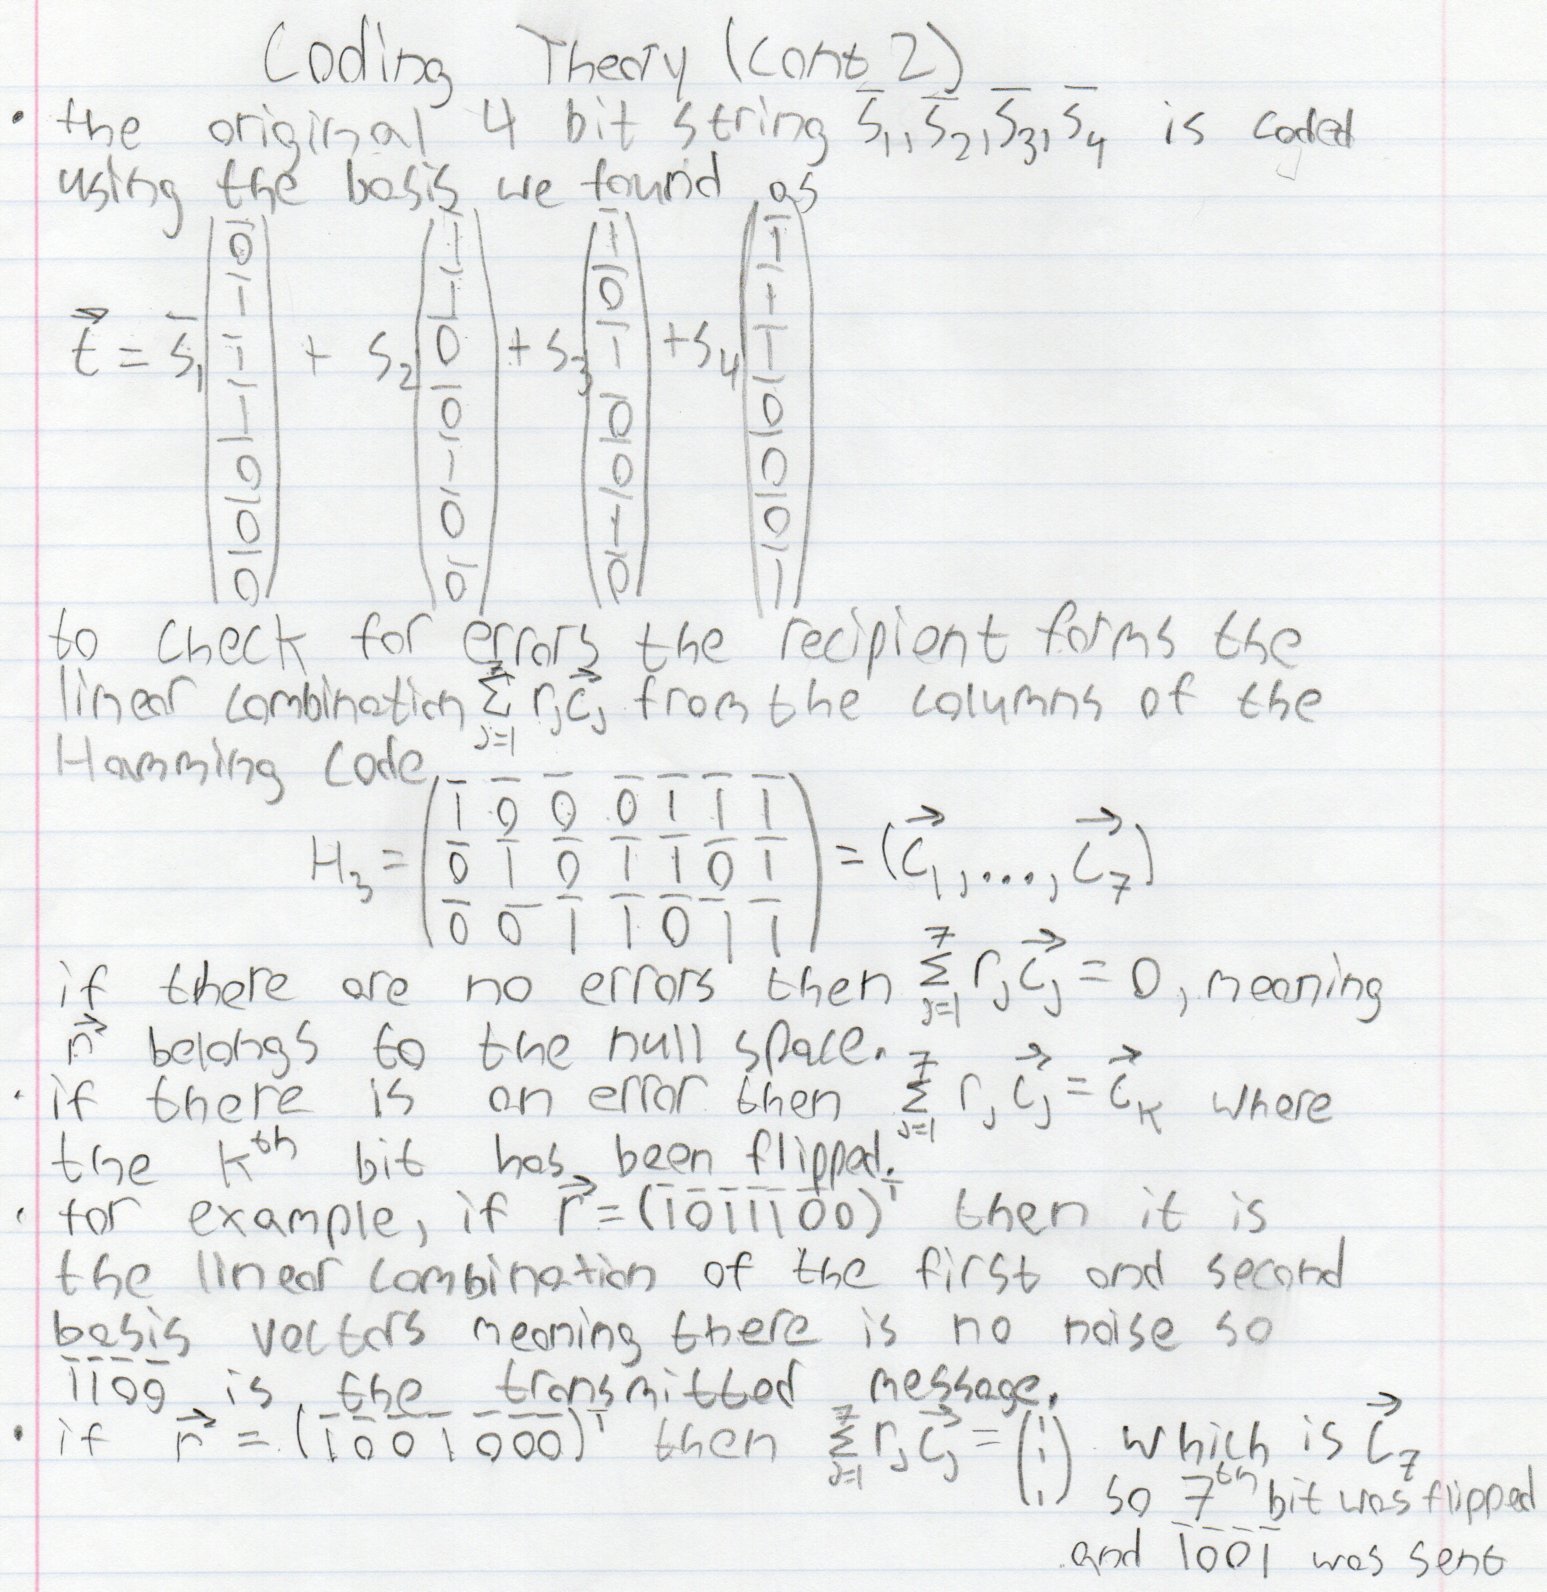 Coding Theory (cont 2)
• the original 4 bit string s̄₁, s̄₂, s̄₃, s̄₄ is coded
using the basis we found as
t⃗ = s̄₁ (0̄ 1̄ 1̄ 1̄ 0̄ 0̄ 0̄) + s₂ (1̄ 1̄ 0̄ 0̄ 1̄ 0̄ 0̄) + s₃ (1̄ 0̄ 1̄ 0̄ 0̄ 1̄ 0̄) + s₄ (1̄ 1̄ 1̄ 0̄ 0̄ 0̄ 1̄)
to check for errors the recipient forms the
linear combination ∑_{j=1}^{7} rⱼc⃗ⱼ from the columns of the
Hamming Code
H₃ = (1̄ 0̄ 0̄ 0̄ 1̄ 1̄ 1̄
0̄ 1̄ 0̄ 1̄ 1̄ 0̄ 1̄
0̄ 0̄ 1̄ 1̄ 0̄ 1̄ 1̄) = (c⃗₁, ..., c⃗₇)
if there are no errors then ∑_{j=1}^{7} rⱼc⃗ⱼ = 0, meaning
r⃗ belongs to the null space.
• if there is an error then ∑_{j=1}^{7} rⱼc⃗ⱼ = c⃗ₖ where
the kᵗʰ bit has been flipped.
• for example, if r⃗ = (1̄0̄1̄1̄1̄0̄0̄)ᵀ then it is
the linear combination of the first and second
basis vectors meaning there is no noise so
1̄1̄0̄0̄ is the transmitted message.
• if r⃗ = (1̄0̄0̄1̄0̄0̄0̄)ᵀ then ∑_{j=1}^{7} rⱼc⃗ⱼ = (1 1 1) which is c⃗₇
so 7ᵗʰ bit was flipped
and 1̄0̄0̄1̄ was sent